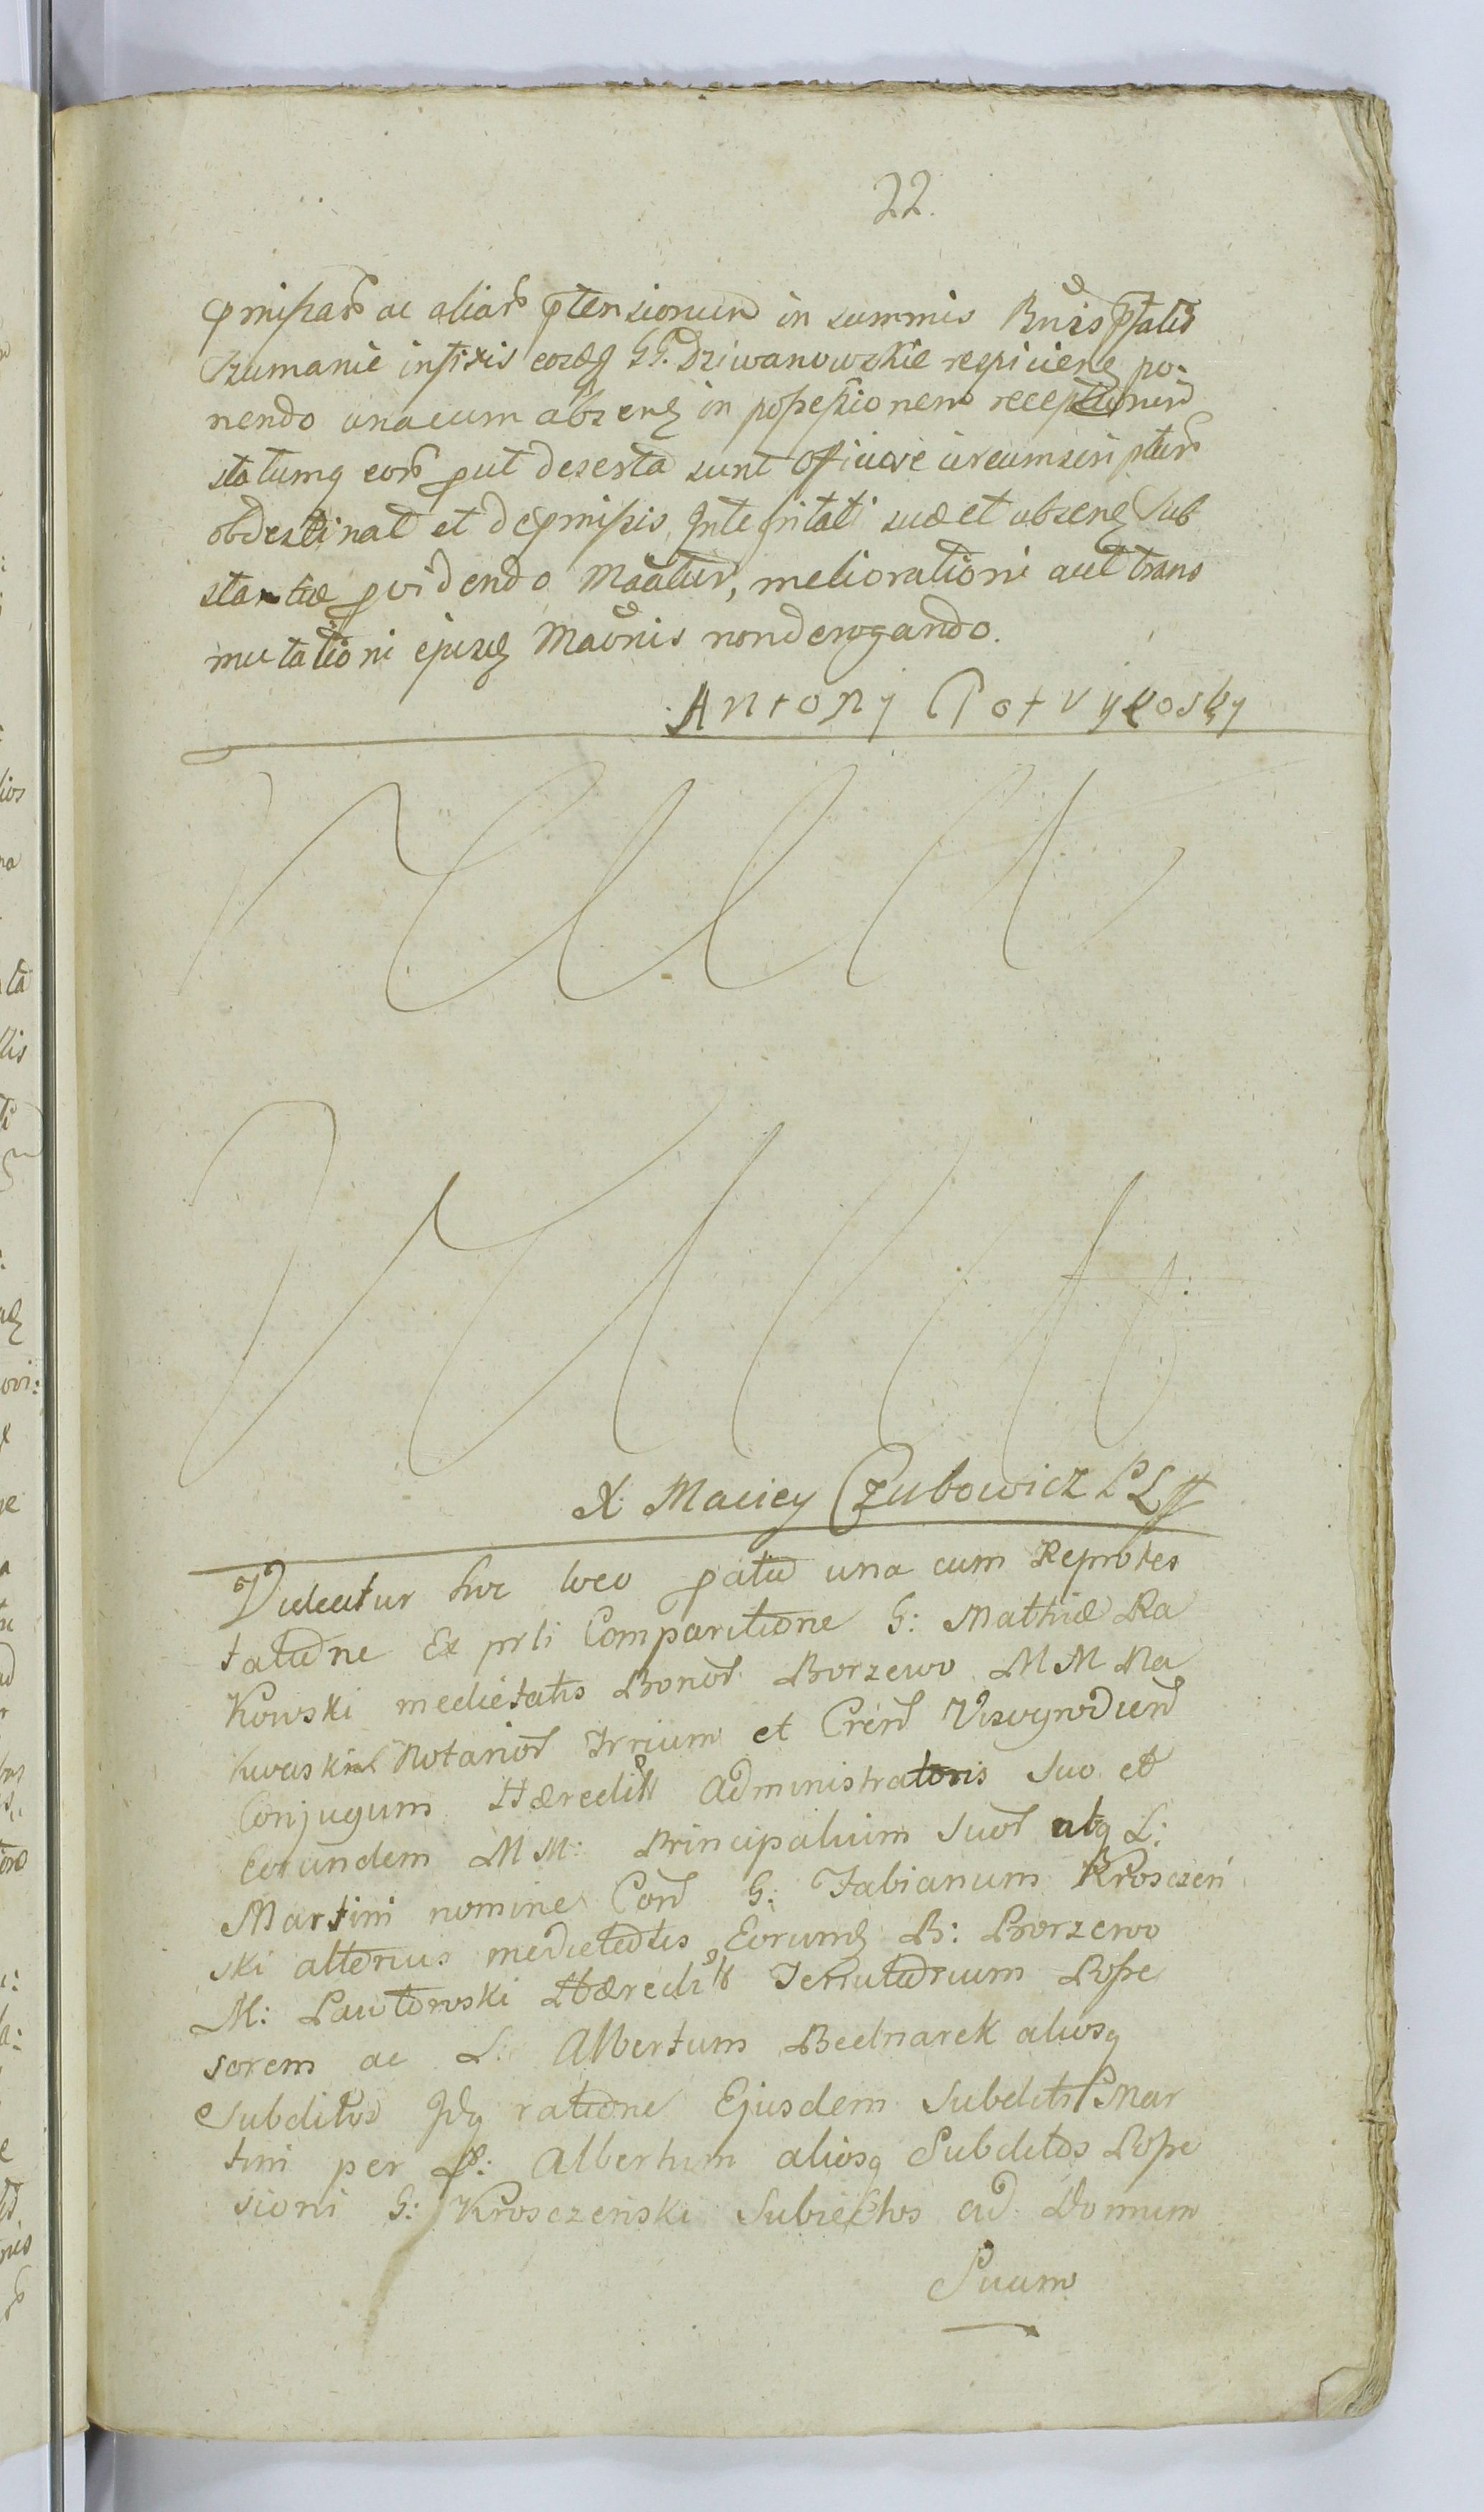 22.
pmissar ac aliar ptensionum in summis Bnis pfatis
Szumanie infixis eosdq GG. Dziwanowskie respicienq po-
nendo unacum absenq in possessionem receptionem
statumq eor put deserta sunt Officiose circumscriptur
obdestinat et de pmissis Integritati suæ et absenq Sub
stantiæ pvidendo Maatur, meliorationi aut trans
mutationi ejusq Maonis non derogando.
Antony Potvykosky
X. Maciey Czubowicz PL
Ducatur hoc loco patio una cum Reprotes
tatione Ex prti Comparitione G: Mathiæ Ra
kowski medietatis Bonor Borzewo MM Na
kwaski Notarior Trrium et Cren Visogrodien
Conjugum Hæredit Administratoris Suo et
Eorundem MM: Principalium Suor atq L:
Martini nomine Con G: Fabianum Krosczeń
ski alterius medietatis Eorumq B: Borzewo
M: Pawłowski Hæredit Tenutarium Posse
sorem ac L: Albertum Bednarek aliosq
Subditos Idq ratione Ejusdem Subditi Mar
tini per L: Albertum aliosq Subditos Posse
sioni G: Krosczeński Subiectos ad Domum
Suum